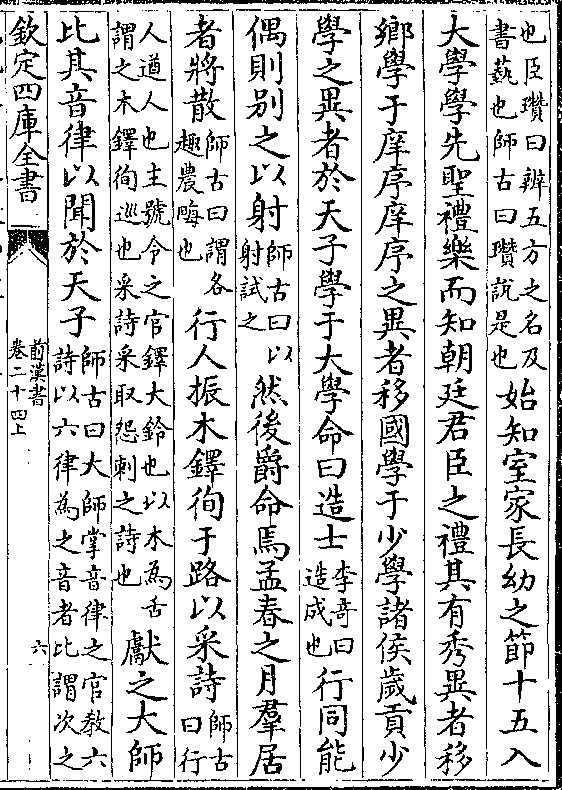 也臣瓚曰辨五方之名及書藝也師古曰瓚説是也始知室家長幼之節十五入
大學學先聖禮樂而知朝廷君臣之禮其有秀異者移
鄉學于庠序庠序之異者移國學于少學諸侯歲貢少
學之異者於天子學于大學命曰造士李竒曰造成也行同能
偶則别之以射師古曰以射試之然後爵命焉孟春之月羣居
者將散師古曰謂各趣農畮也行人振木鐸徇于路以采詩師古曰行
人遒人也主號令之官鐸大鈴也以木為舌謂之木鐸徇巡也采詩采取怨刺之詩也獻之大師
比其音律以聞於天子師古曰大師掌音律之官教六詩以六律為之音者比謂次之
欽定四庫全書
前漢書
卷二十四上
六